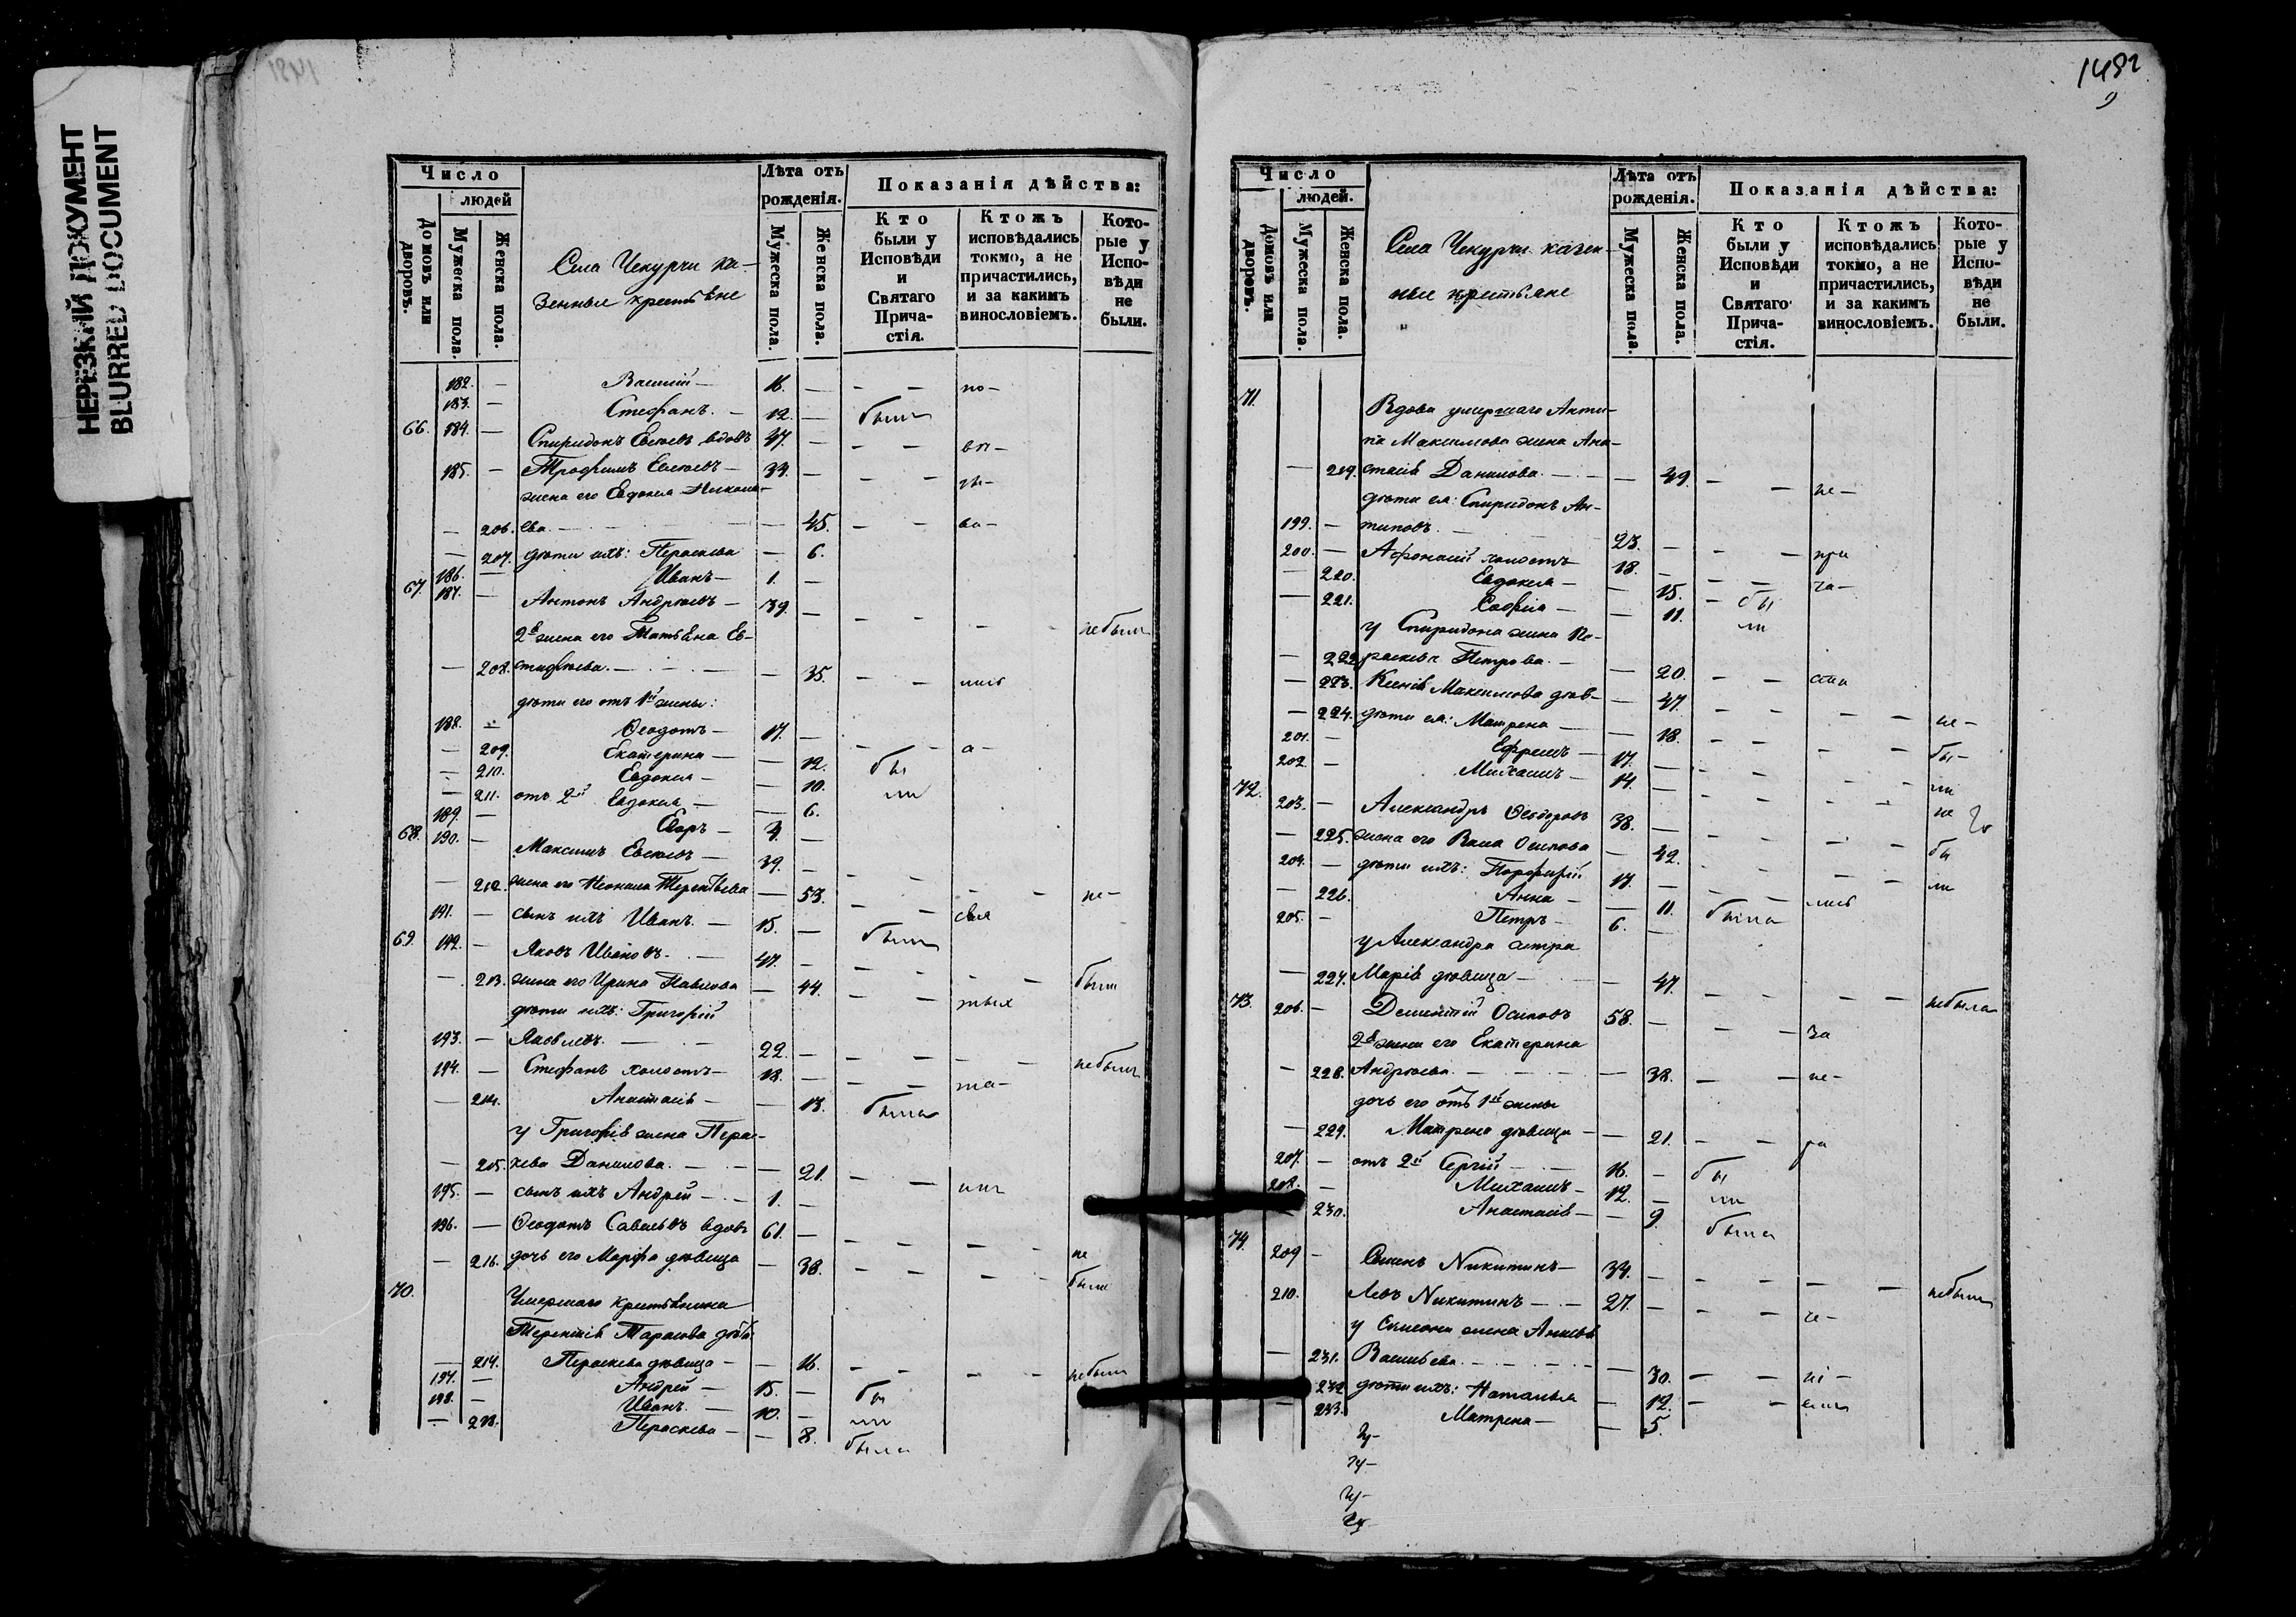 НЕРЕЗКИЙ ДОКУМЕНТ
BLURRED DOCUMENT
Число
людей
Домовъ или дворовъ.
Мужеска пола.
Женска пола.
Села Чекурчи ка-
зенные крестьяне
Лѣта отъ рожденія.
Мужеска пола.
Женска пола.
Показанія дѣйства:
Кто были у Исповѣди и Святаго Прича-стія.
Ктожъ исповѣдались токмо, а не причастились, и за какимъ винословіемъ.
Кото-рые у Испо-вѣди не были.
182. — Василій — 16. — — — по —
183. — Стефанъ. — 12. — были
66. 184. — Спиридонъ Евсѣевъ вдовъ 47. — — —
185. — Трофимъ Евсѣевъ — 34. — — —
жена его Евдокія Никола-
— 206. ева — — 45. — —
— 207. дѣти ихъ: Параскева — 6.
186. — Иванъ — 1. —
67. 187. — Антонъ Андреевъ — 39. — — — — — не были
2я жена его Татьяна Ев-
— 208. стифѣева. — — 35. — —
дѣти его отъ 1й жены:
188. — Ѳеодотъ — 17. — — — а —
— 209. Екатерина — — 12. бы
— 210. Евдокія — — 10. ли
— 211. отъ 2й Евдокія — — 6.
189. — Егоръ — 4. —
68. 190. — Максимъ Евсѣевъ — 39. — — — — — не —
— 212. жена его Неонила Терентьева — 53. — —
191. — сынъ ихъ Иванъ. — 15. — были
69. 192. — Яковъ Ивановъ. — 47. — — — — — были
— 213. жена его Ирина Павлова — 44. — —
дѣти ихъ: Григорій
193. — Яковлевъ. — 22. — — — — — не были
194. — Стефанъ холостъ — 18. — — — та —
— 214. Анастасія — — 13. была
у Григорія жена Парас-
— 215. кева Данилова. — — 21. — —
195. — сынъ ихъ Андрей — 1. —
196. — Ѳеодотъ Савельевъ вдовъ 61. — — — — — не
— 216. дочь его Марфа дѣвица — 38. — — — — были
70. Умершаго крестьянина
Терентія Тарасова дѣти:
— 217. Параскева дѣвица — — 16. — — — — не были
197. — Андрей — 15. — бы
198. — Иванъ. — 10. — ли
— 218. Параскева — — 8. была
1482
Число
людей.
Домовъ или дворовъ.
Мужеска пола.
Женска пола.
Села Чекурчи казен-
ные крестьяне
Лѣта отъ рожденія.
Мужеска пола.
Женска пола.
Показанія дѣйства:
Кто были у Исповѣди и Святаго Прича-стія.
Ктожъ исповѣдались токмо, а не причастились, и за какимъ винословіемъ.
Кото-рые у Испо-вѣди не были.
71. Вдова умершаго Анти-
па Максимова жена Ана-
— 219. стасія Данилова. — — 49. — — не —
дѣти ея: Спиридонъ Ан-
199. — типовъ. 23. — — — при
200. — Афонасій холостъ 18. — — — ча —
— 220. Евдокія — — 15. — бы
— 221. Софія — — 11. ли
у Спиридона жена Па-
— 222. раскева Петрова. — — 20. — —
— 223. Ксенія Максимова дѣв- — 47. — — — — не —
— 224. дѣти ея: Матрена — — 18. — — — — бы —
201. — Ефремъ — 17. — — — — — ли
202. — Михаилъ — 14. — — — — — не
72. 203. — Александръ Ѳеодоровъ 38. — — — — — бы
— 225. жена его Васса Осипова — 42. — — — — ли
204. — дѣти ихъ: Порфирій 17. — — — лись
— 226. Анна — — 11. была
205. — Петръ — 6. —
у Александра сестра
— 227. Марія дѣвица — — 47. — — — — не была
73. 206. — Дементій Осиповъ 58. — — — за
2я жена его Екатерина
— 228. Андреева. — — 38. — — не —
дочь его отъ 1й жены
— 229. Матрена дѣвица — — 21. — — ра
207. — отъ 2й Сергій — 16. — бы
208. — Михаилъ — 12. — ли
230. Анастасія — — 9. была
74. 209 — Семенъ Никитинъ — 34. — — — — — не были
210. Левъ Никитинъ — 27. — — — че —
у Симеона жена Анисья
— 231. Васильева. — — 30. — — ні —
232 дѣти ихъ: Наталья — 12. — — емъ
— 233. Матрена — — 5.